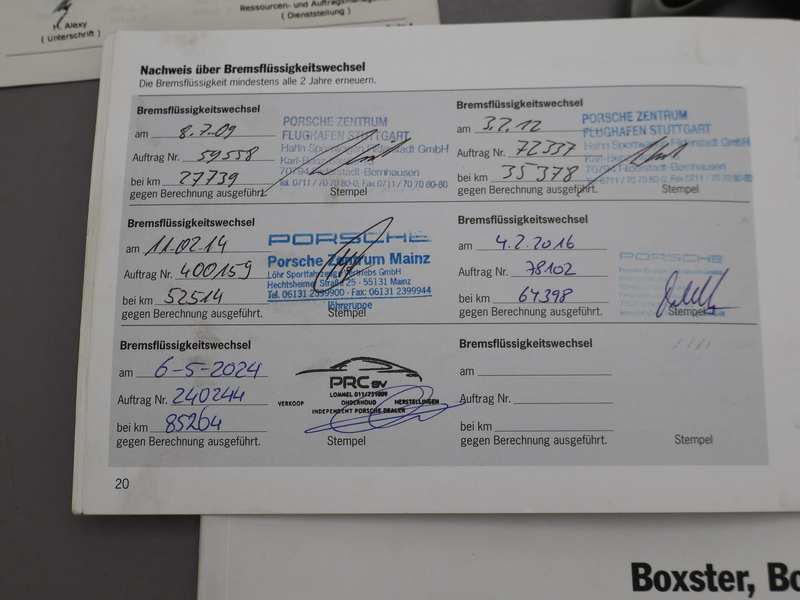 H. Alexy
( Unterschrift )
Ressourcen- und
( Dienststellung )
Nachweis über Bremsflüssigkeitswechsel
Die Bremsflüssigkeit mindestens alle 2 Jahre erneuern.
Bremsflüssigkeitswechsel
am 8.7.09
Auftrag Nr. 59558
bei km 27739
gegen Berechnung ausgeführt.
PORSCHE ZENTRUM
FLUGHAFEN STUTTGART
Hahn Sportwagen Filderstadt GmbH
70794 Filderstadt-Bernhausen
Tel. 0711 / 70 70 80-0, Fax 0711 / 70 70 80-80
Stempel
Bremsflüssigkeitswechsel
am 3.2.12
Auftrag Nr. 72337
bei km 35378
gegen Berechnung ausgeführt.
PORSCHE ZENTRUM
FLUGHAFEN STUTTGART
Hahn Sportwagen Filderstadt GmbH
70794 Filderstadt-Bernhausen
Tel. 0711 / 70 70 80-0, Fax 0711 / 70 70 80-80
Stempel
Bremsflüssigkeitswechsel
am 11.02.14
Auftrag Nr. 400159
bei km 52514
gegen Berechnung ausgeführt.
PORSCHE
Porsche Zentrum Mainz
Löhr Sportfahrzeug Vertriebs GmbH
Hechtsheimer Straße 25 · 55131 Mainz
Tel. 06131 2399900 · Fax: 06131 2399944
löhrgruppe
Stempel
Bremsflüssigkeitswechsel
am 4.2.2016
Auftrag Nr. 78102
bei km 64398
gegen Berechnung ausgeführt.
PORSCHE
Stempel
Bremsflüssigkeitswechsel
am 6-5-2024
Auftrag Nr. 240244
bei km 85264
gegen Berechnung ausgeführt.
PRC BV
LOMMEL 011/731009
VERKOOP ONDERHOUD HERSTELLINGEN
INDEPENDENT PORSCHE DEALER
Stempel
Bremsflüssigkeitswechsel
am
Auftrag Nr.
bei km
gegen Berechnung ausgeführt.
Stempel
20
Boxster,